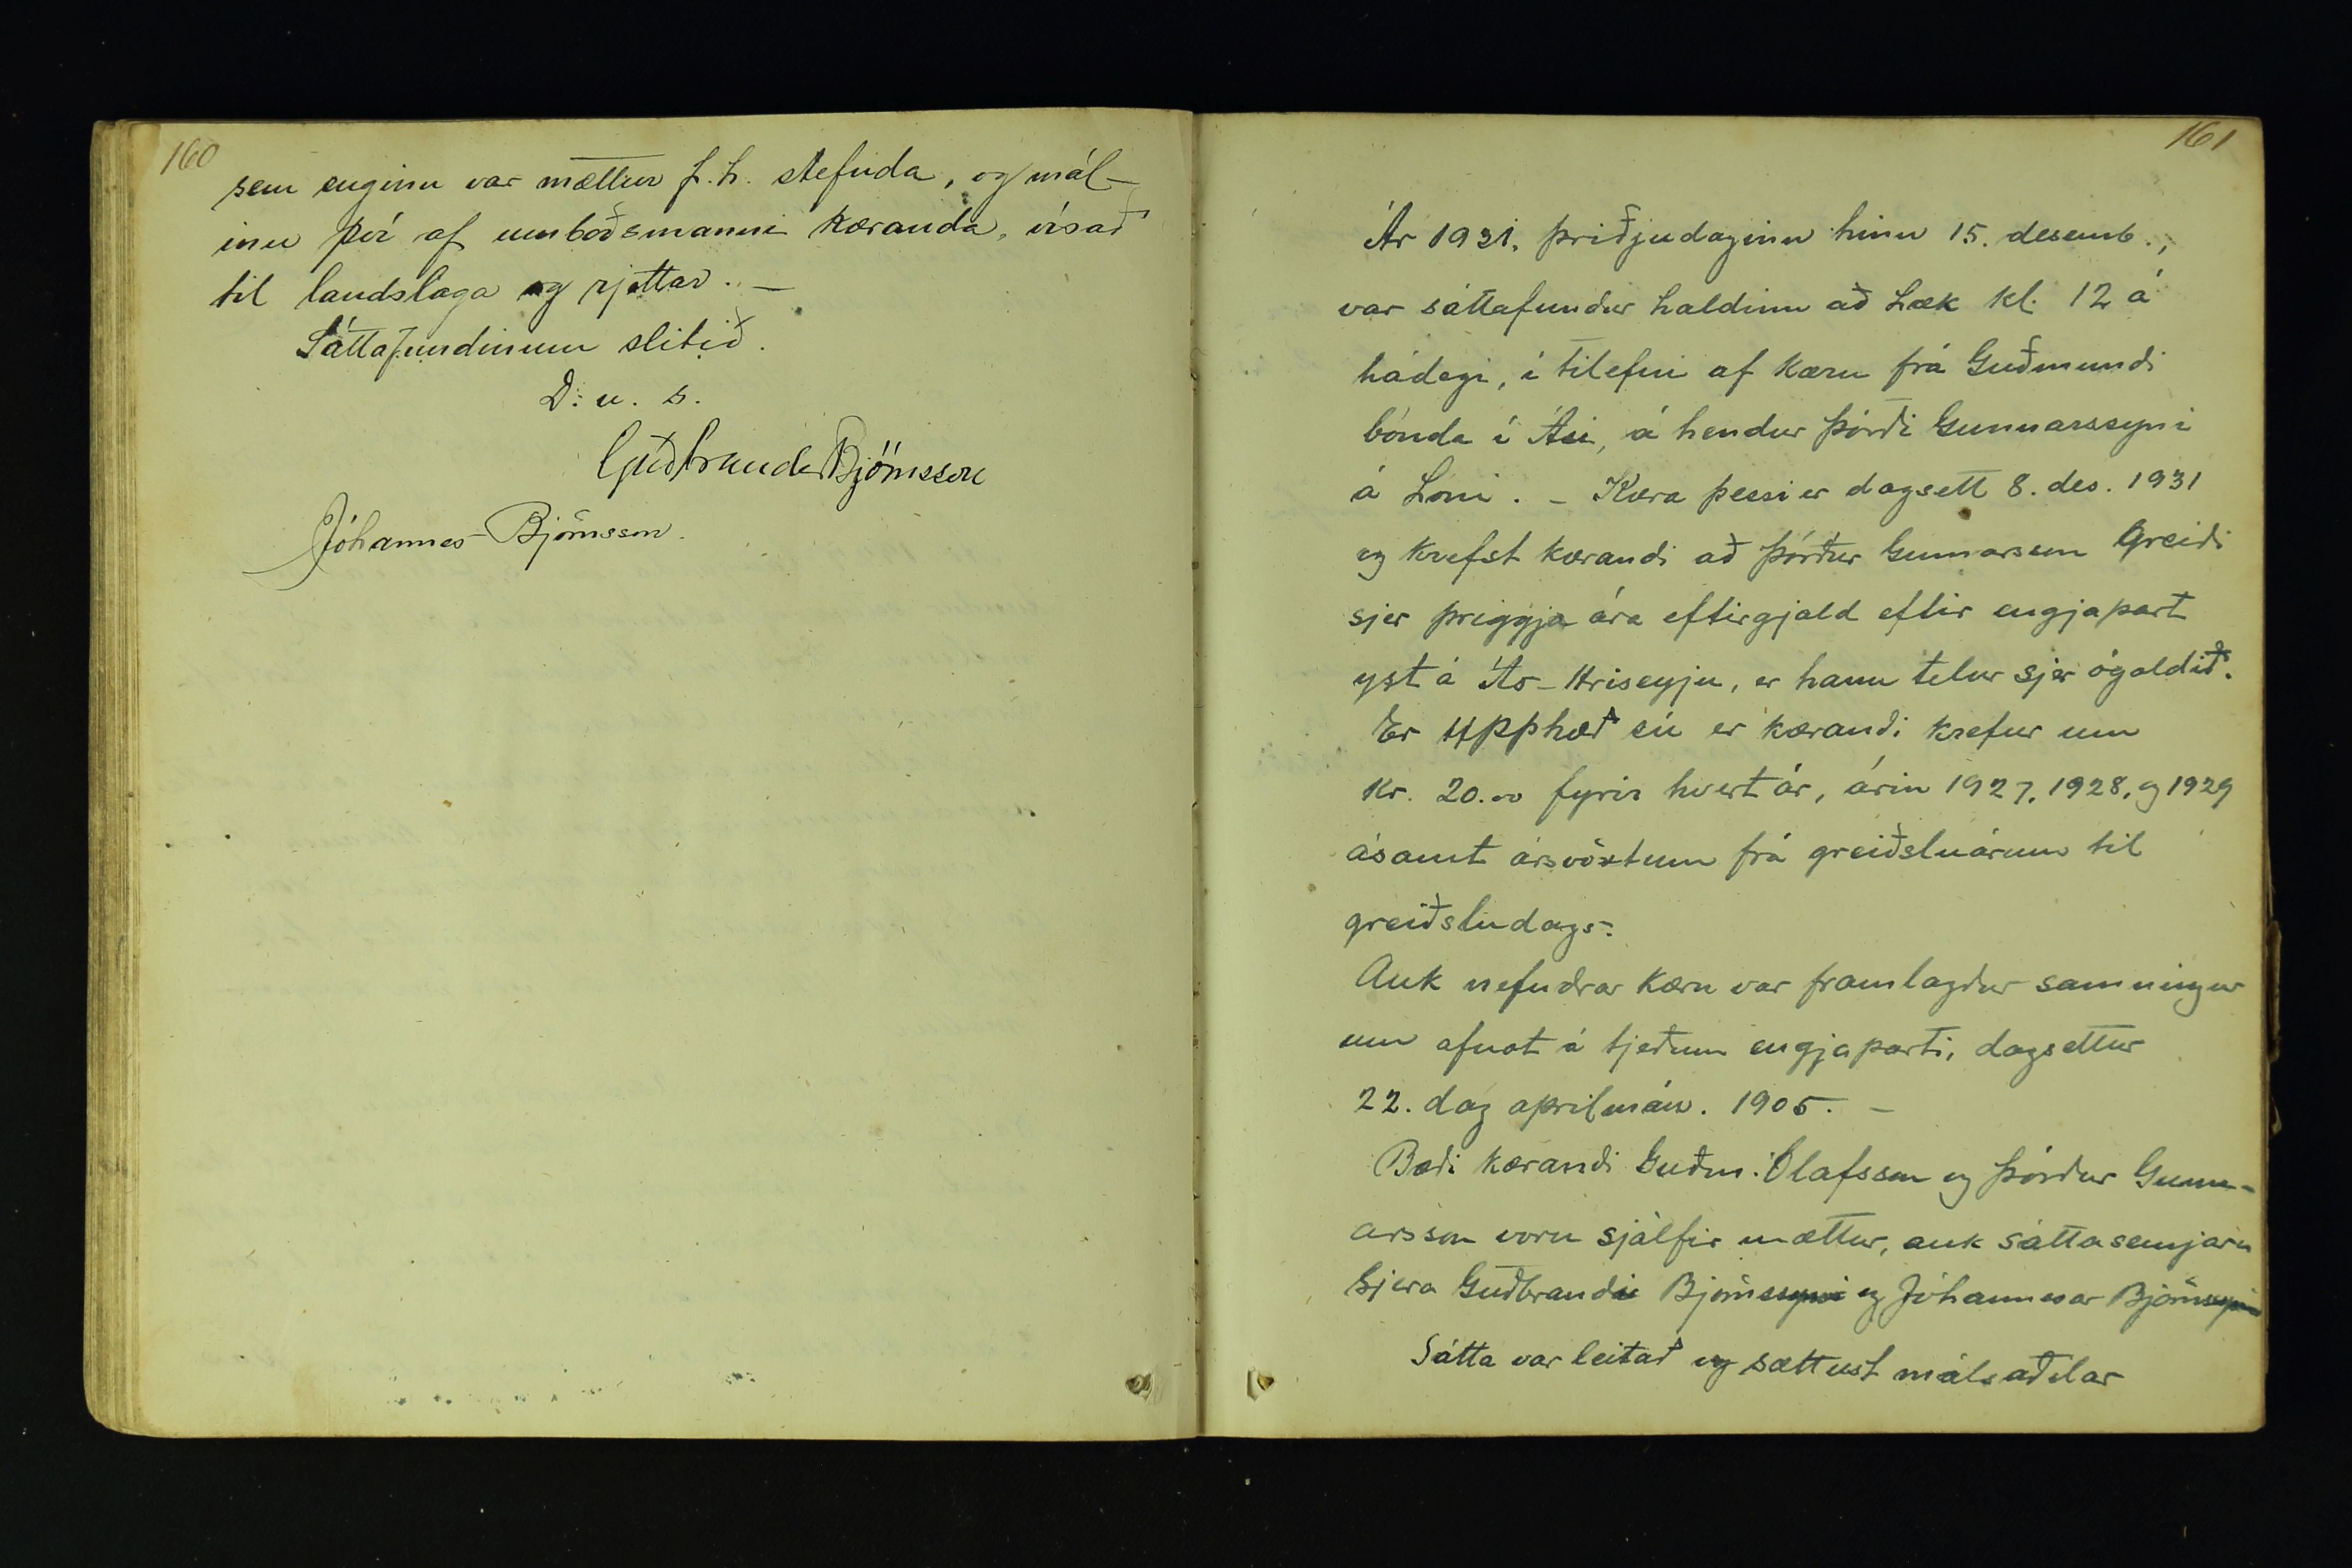 160
sem enginn var mættur f. h. stefnda, og mál-
inu því af umboðsmanni kæranda, vísað
til landslaga og rjettar. —
Sáttafundinum slitið.
D: u. s.
Guðbrandur Björnsson
Jóhannes Björnsson.
161
Ár 1931, þriðjudaginn hinn 15. desemb.,
var sáttafundur haldinn að Læk kl. 12 á
hádegi, í tilefni af kæru frá Guðmundi
bónda í Ási, á hendur Þórði Gunnarssyni
á Lóni. – Kæra þessi er dagsett 8. des. 1931
og krefst kærandi að Þórður Gunnarsson greiði
sjer þriggja ára eftirgjald eftir engjapart
yst á Ás-Hriseyju, er hann telur sjer ógoldið.
Er Upphæð sú er kærandi krefur um
kr. 20.00 fyrir hvert ár, árin 1927, 1928, og 1929
ásamt ársvöxtum frá greiðsluárum til
greiðsludags.
Auk nefndrar kæru var framlagður samningur
um afnot á tjeðum engjaparti, dagsettur
22. dag aprilmán. 1905. –
Bæði kærandi Guðm. Ólafsson og Þórður Gunn-
arsson voru sjálfir mættur, auk sáttasemjara
Sjera Guðbrandi Björnssyni og Jóhannesar Björnssyni
Sátta var leitað og sættust málsaðilar